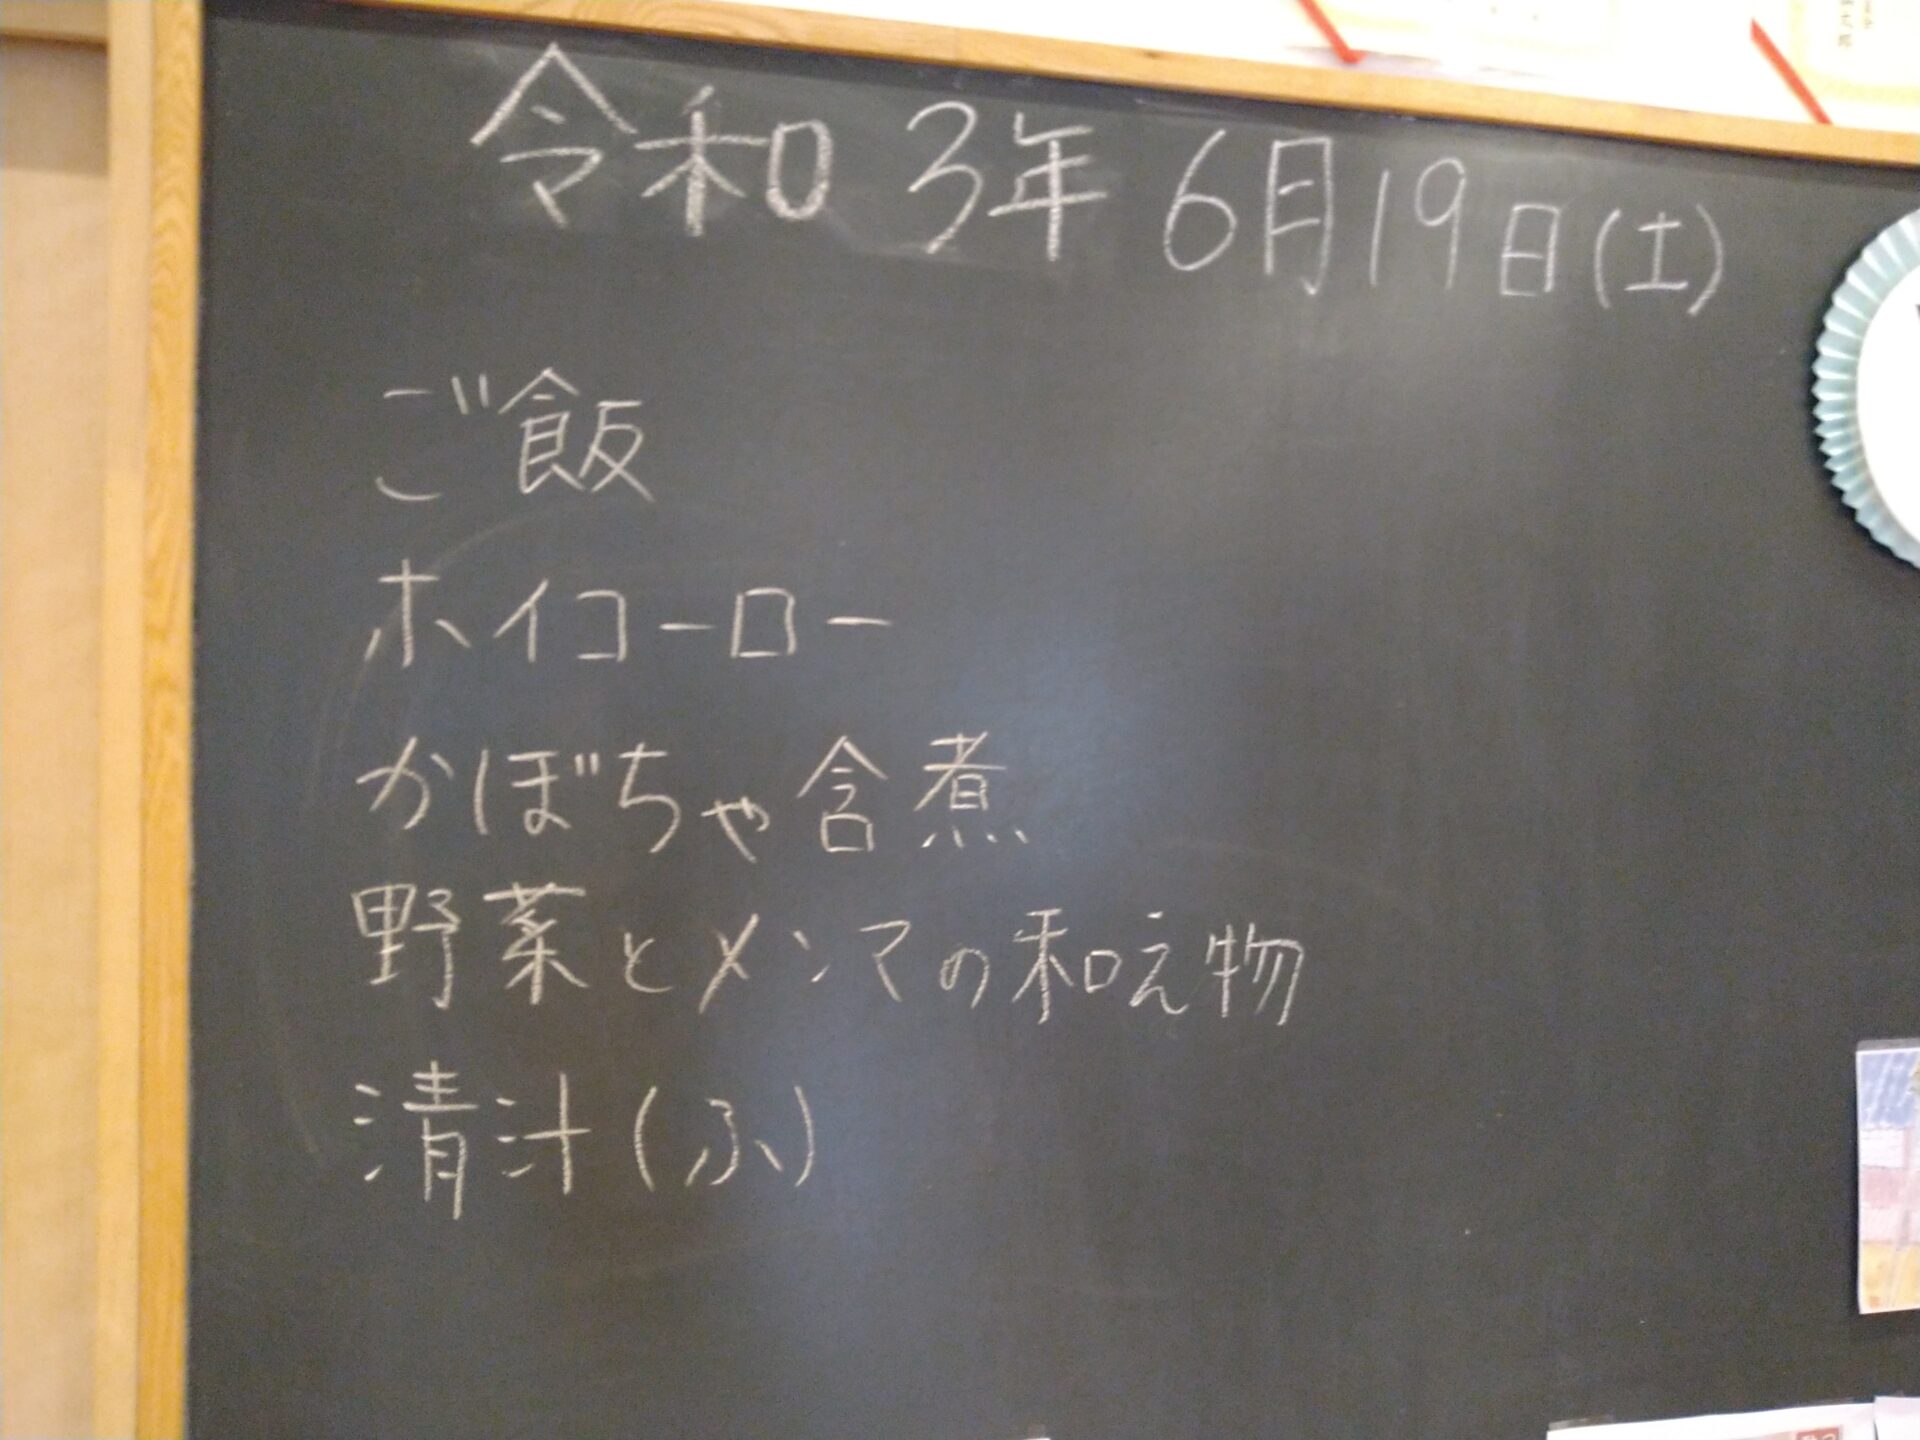 令和3年 6月19日(土)
ご飯
ホイコーロー
かぼちゃ含煮
野菜とメンマの和え物
清汁(ふ)